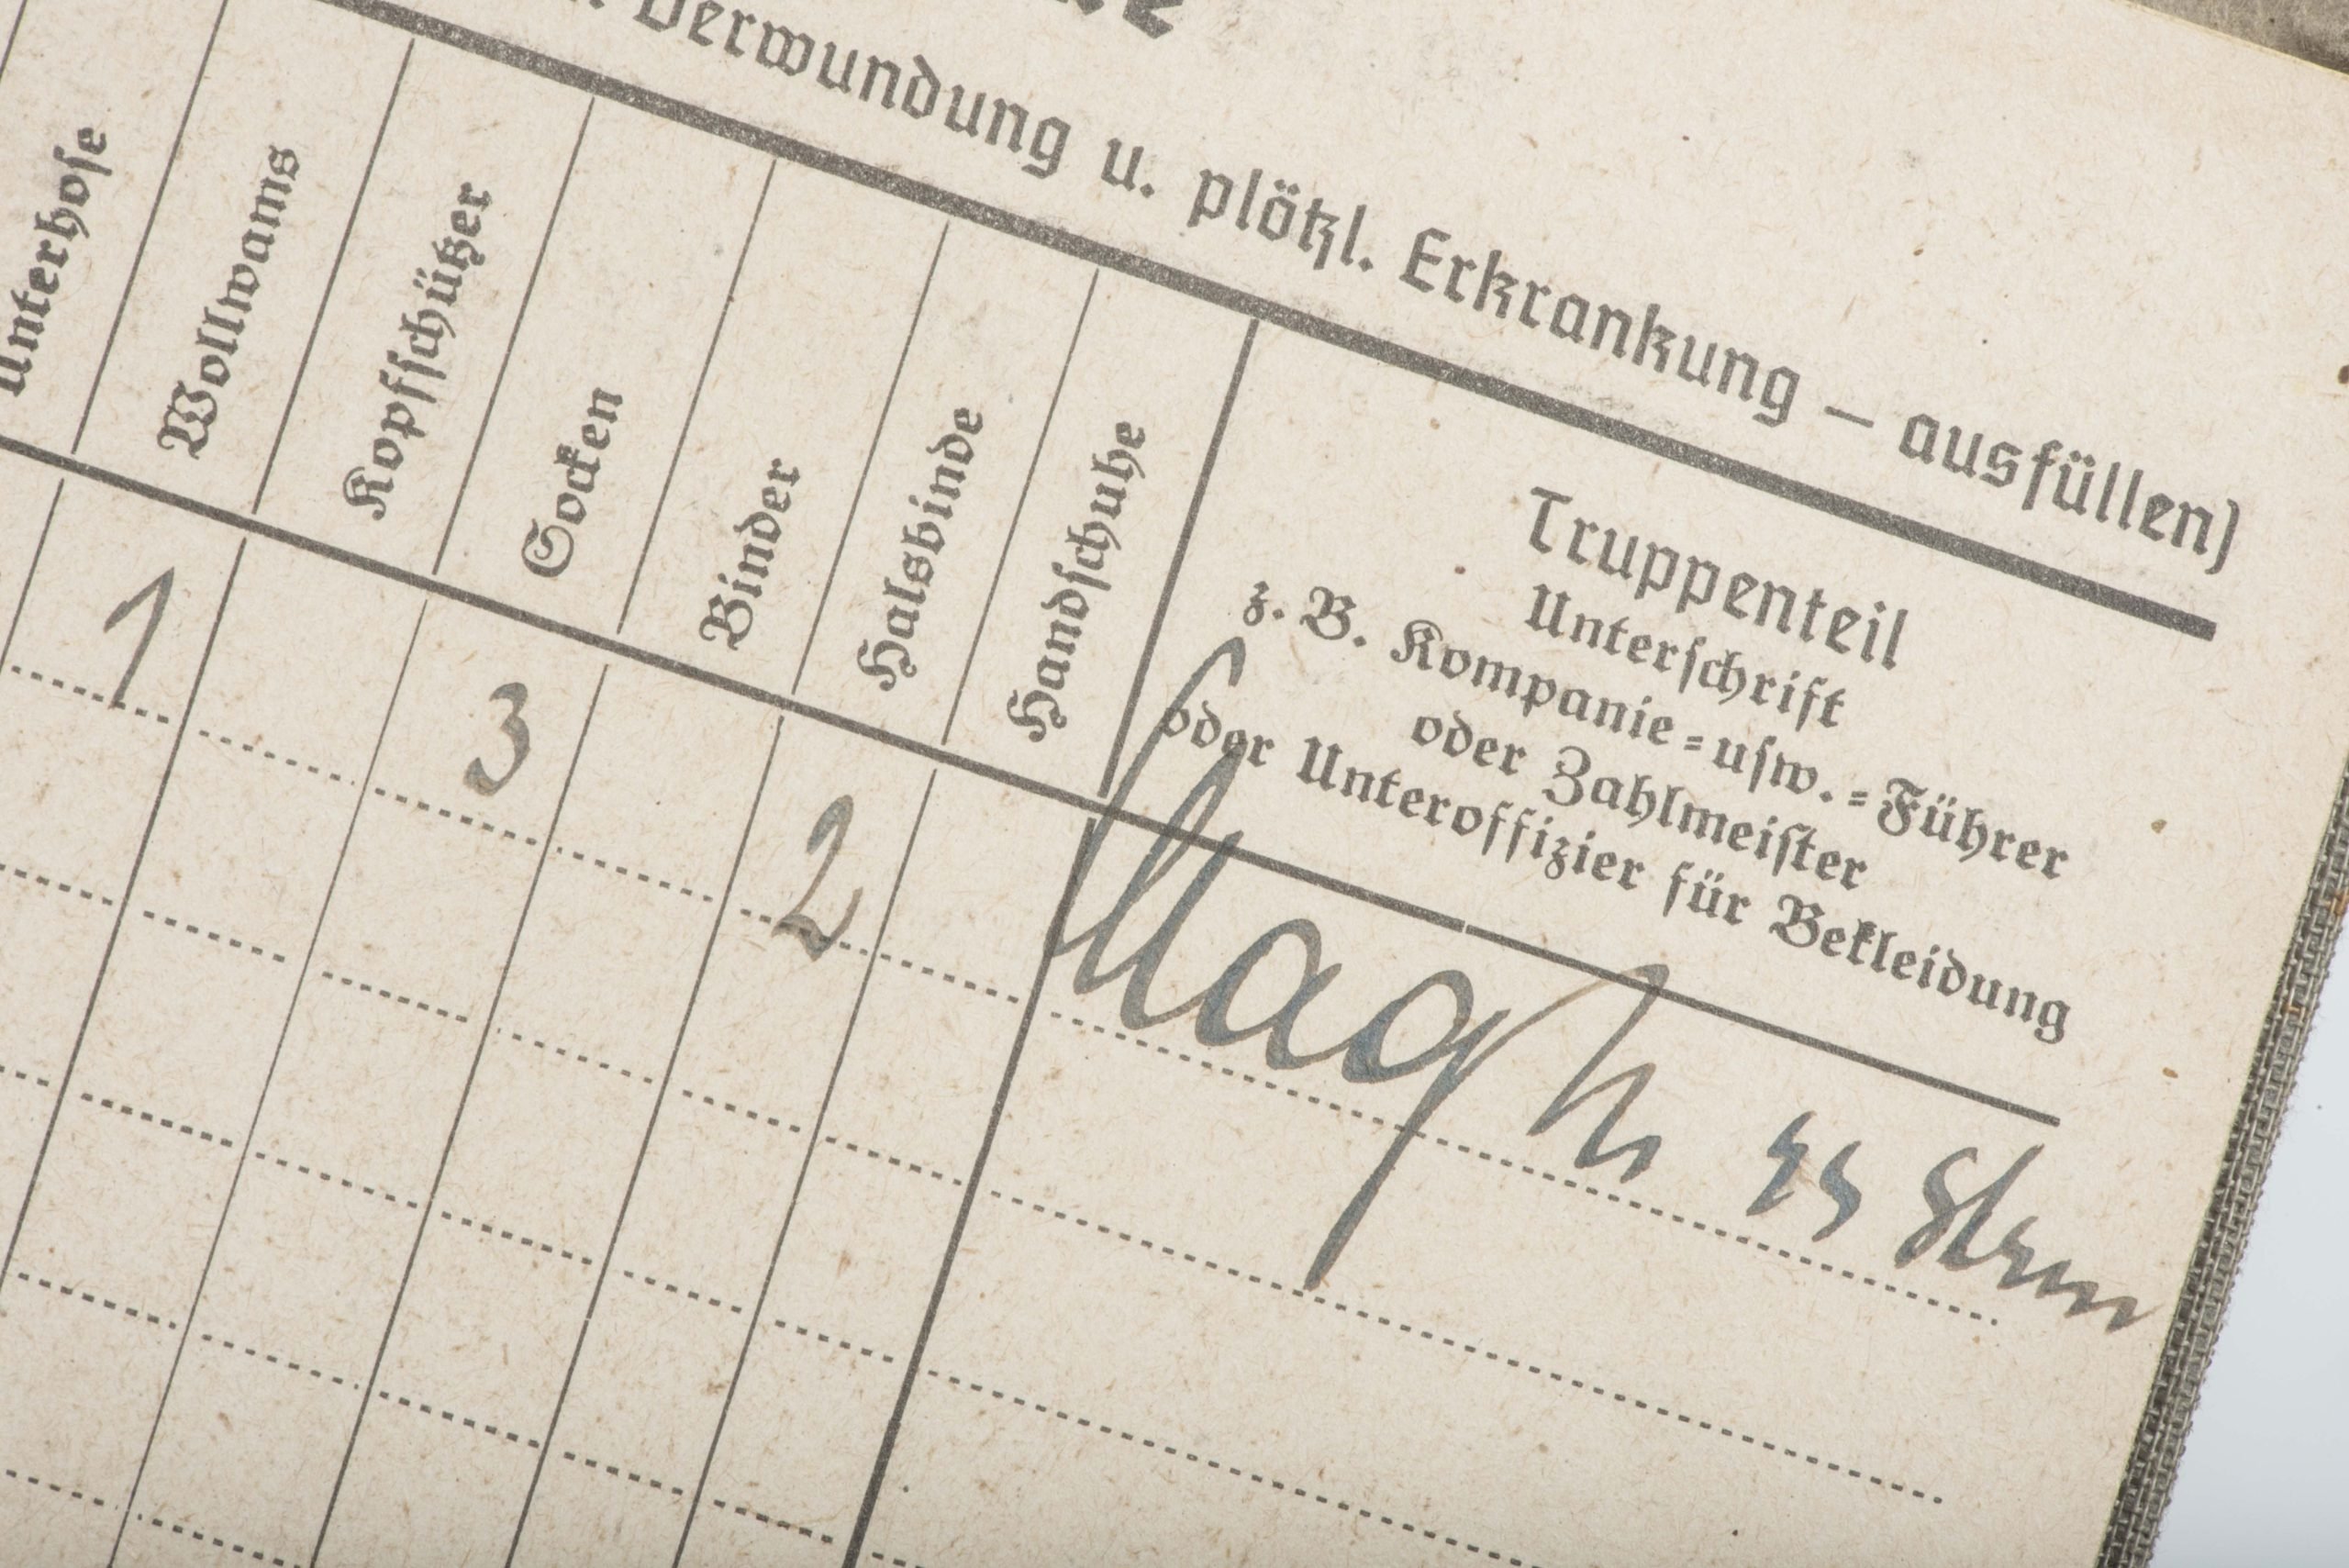 Verwundung u. plötzl. Erkrankung – ausfüllen)
Unterhose
Wollwams
Kopfschützer
Socken
Binder
Halsbinde
Handschuhe
Truppenteil
Unterschrift
z. B. Kompanie-usw.-Führer
oder Zahlmeister
oder Unteroffizier für Bekleidung
1 3 2